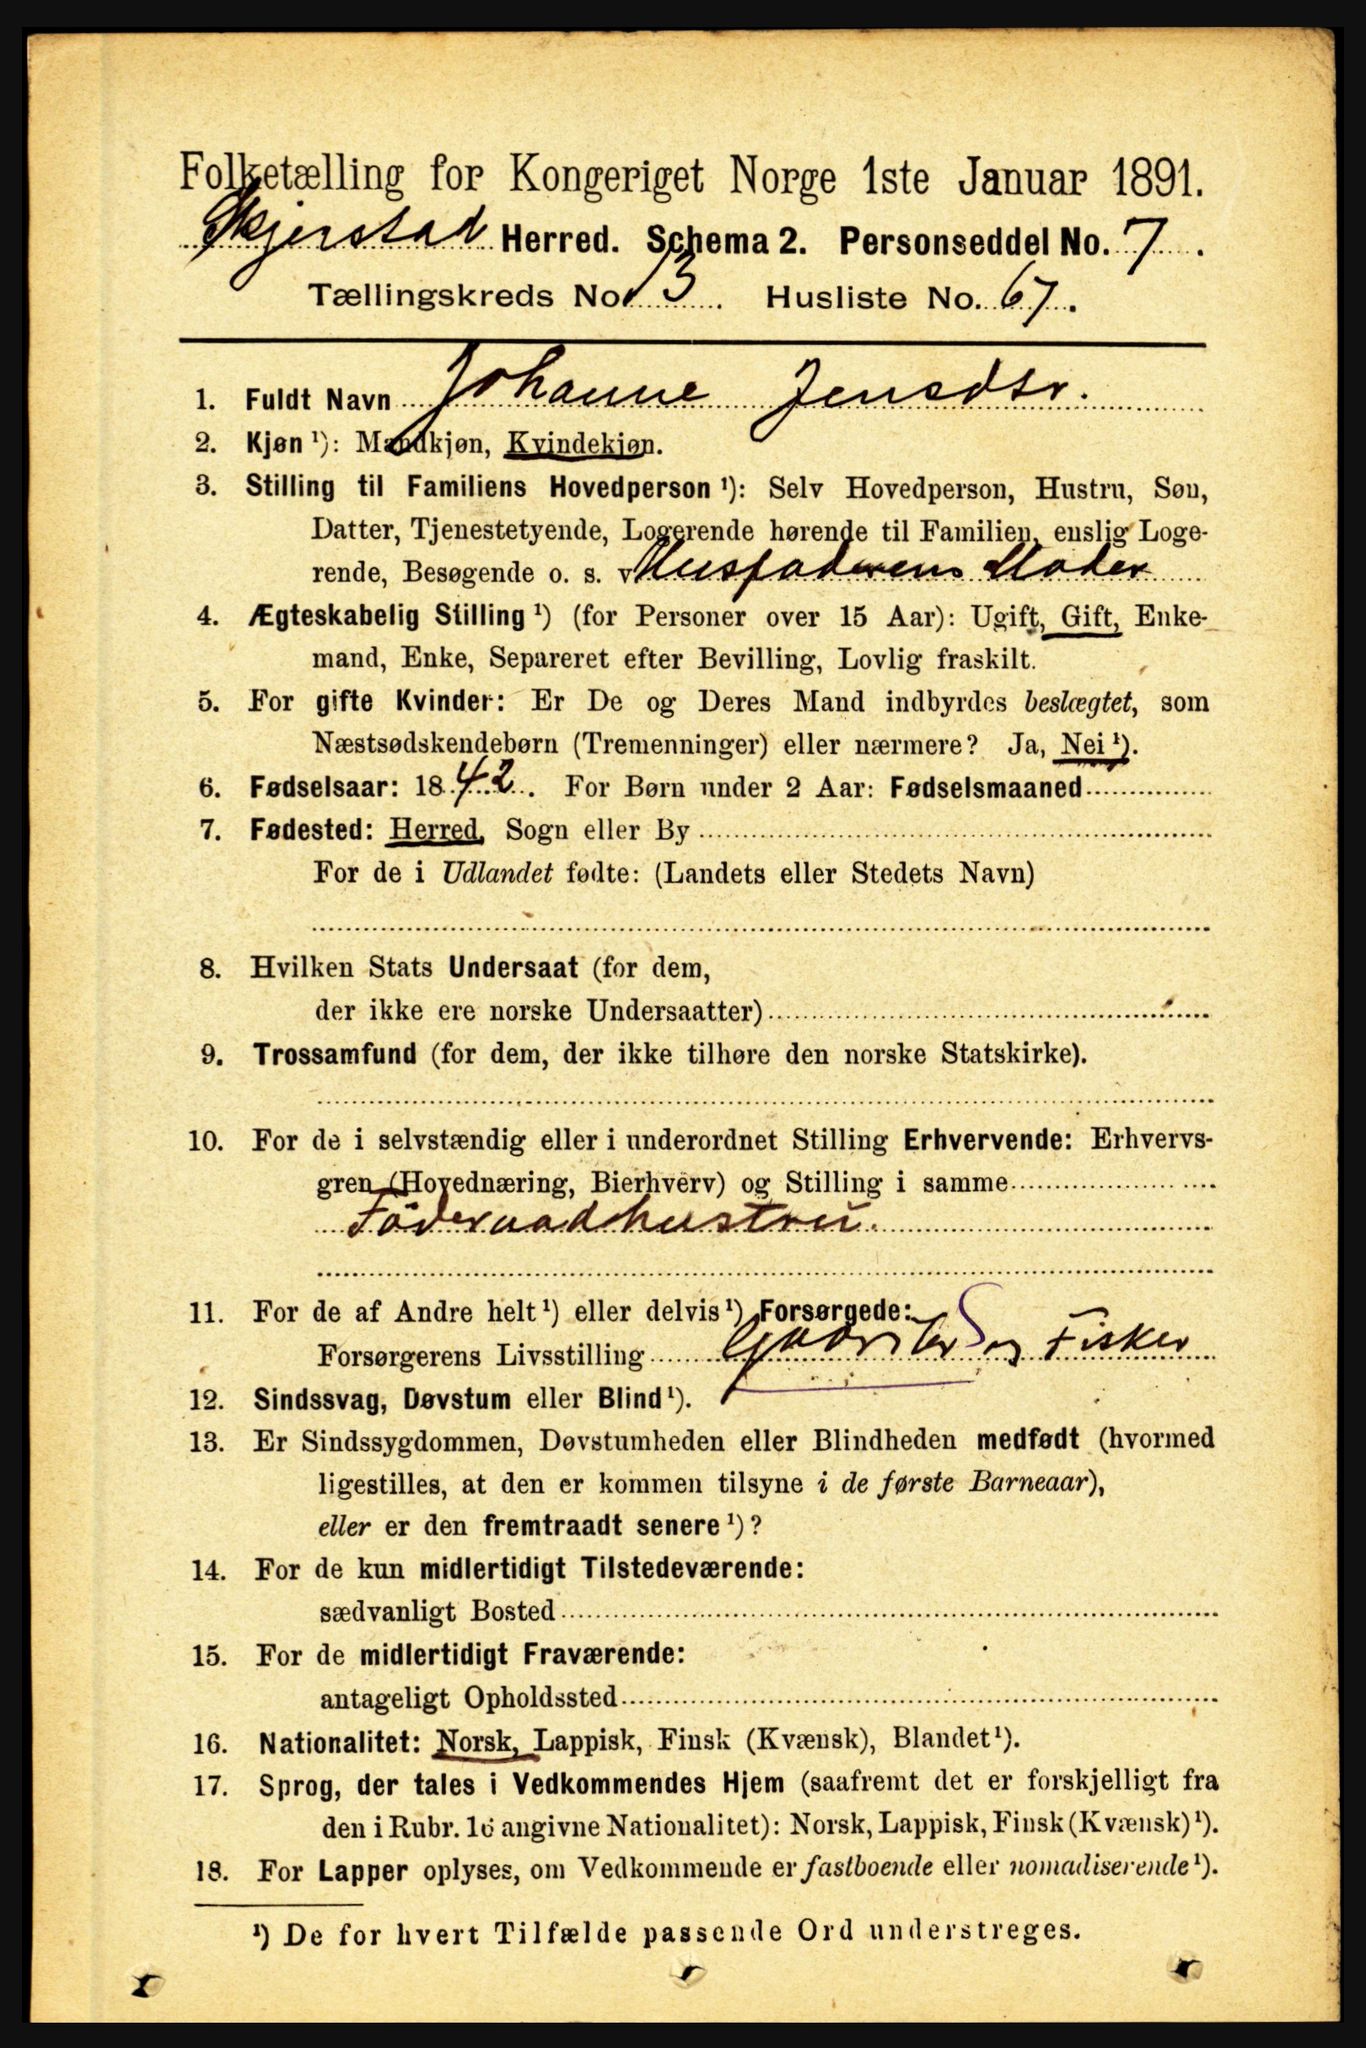 Folketælling for Kongeriget Norge 1ste Januar 1891.
Skjerstad Herred. Schema 2. Personseddel No. 7.
Tællingskreds No. 13. Husliste No. 67.
1. Fuldt Navn Johanne Jensdtr.
2. Kjøn ¹): Mandkjøn, Kvindekjøn.
3. Stilling til Familiens Hovedperson ¹): Selv Hovedperson, Hustru, Søn,
Datter, Tjenestetyende, Logerende hørende til Familien, enslig Loge-
rende, Besøgende o. s. v Husfaderens Moder
4. Ægteskabelig Stilling ¹) (for Personer over 15 Aar): Ugift, Gift, Enke-
mand, Enke, Separeret efter Bevilling, Lovlig fraskilt.
5. For gifte Kvinder: Er De og Deres Mand indbyrdes beslægtet, som
Næstsødskendebørn (Tremenninger) eller nærmere? Ja, Nei ¹).
6. Fødselsaar: 1842. For Børn under 2 Aar: Fødselsmaaned
7. Fødested: Herred, Sogn eller By
For de i Udlandet fødte: (Landets eller Stedets Navn)
8. Hvilken Stats Undersaat (for dem,
der ikke ere norske Undersaatter)
9. Trossamfund (for dem, der ikke tilhøre den norske Statskirke).
10. For de i selvstændig eller i underordnet Stilling Erhvervende: Erhvervs-
gren (Hovednæring, Bierhverv) og Stilling i samme
Föderaadhustru.
11. For de af Andre helt ¹) eller delvis ¹) Forsørgede:
Forsørgerens Livsstilling og Fisker
12. Sindssvag, Døvstum eller Blind ¹).
13. Er Sindssygdommen, Døvstumheden eller Blindheden medfødt (hvormed
ligestilles, at den er kommen tilsyne i de første Barneaar),
eller er den fremtraadt senere ¹)?
14. For de kun midlertidigt Tilstedeværende:
sædvanligt Bosted
15. For de midlertidigt Fraværende:
antageligt Opholdssted
16. Nationalitet: Norsk, Lappisk, Finsk (Kvænsk), Blandet ¹).
17. Sprog, der tales i Vedkommendes Hjem (saafremt det er forskjelligt fra
den i Rubr. 16 angivne Nationalitet): Norsk, Lappisk, Finsk (Kvænsk) ¹).
18. For Lapper oplyses, om Vedkommende er fastboende eller nomadiserende ¹).
¹) De for hvert Tilfælde passende Ord understreges.